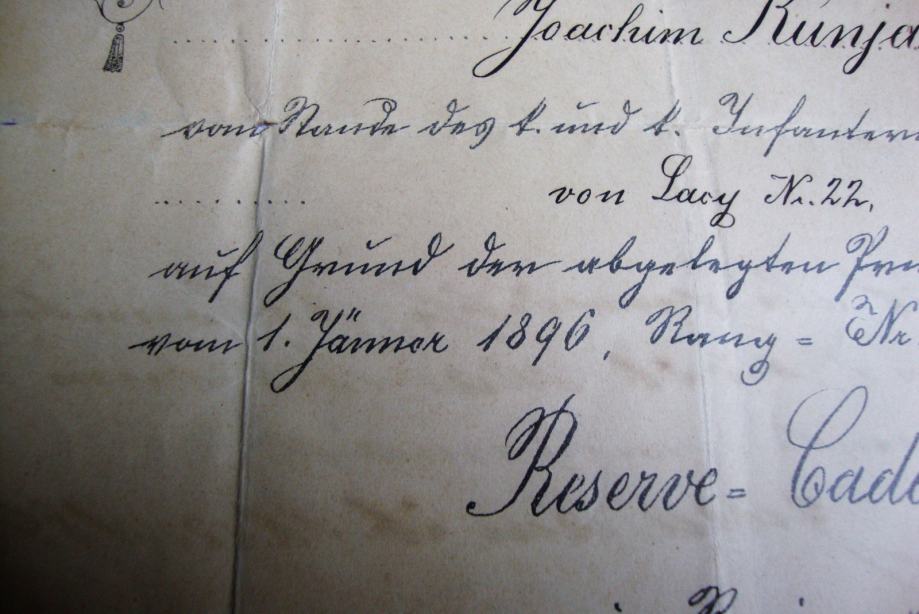 Joachim Kunja
vom Stande des k. und k. Infanter
von Lacy Nr. 22,
auf Grund der abgelegten Prü
vom 1. Jänner 1896, Rang = Nr
Reserve = Cade